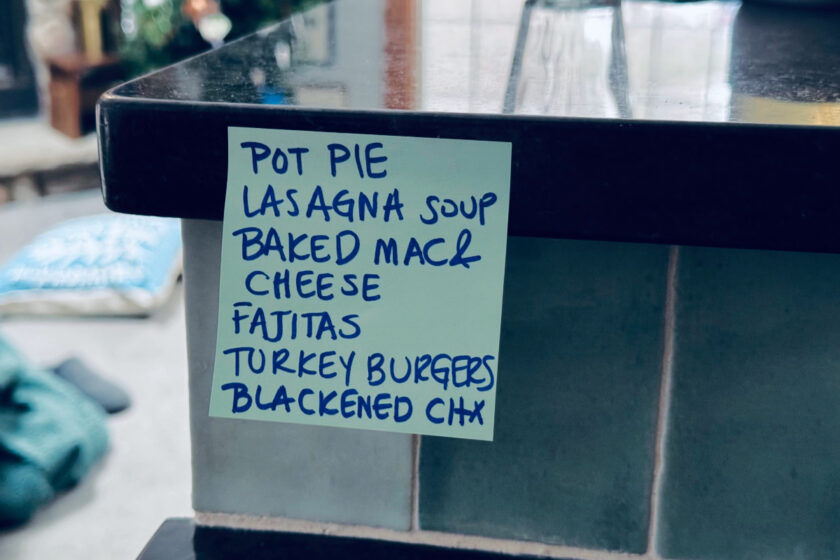 POT PIE
LASAGNA SOUP
BAKED MAC &
CHEESE
FAJITAS
TURKEY BURGERS
BLACKENED CHX